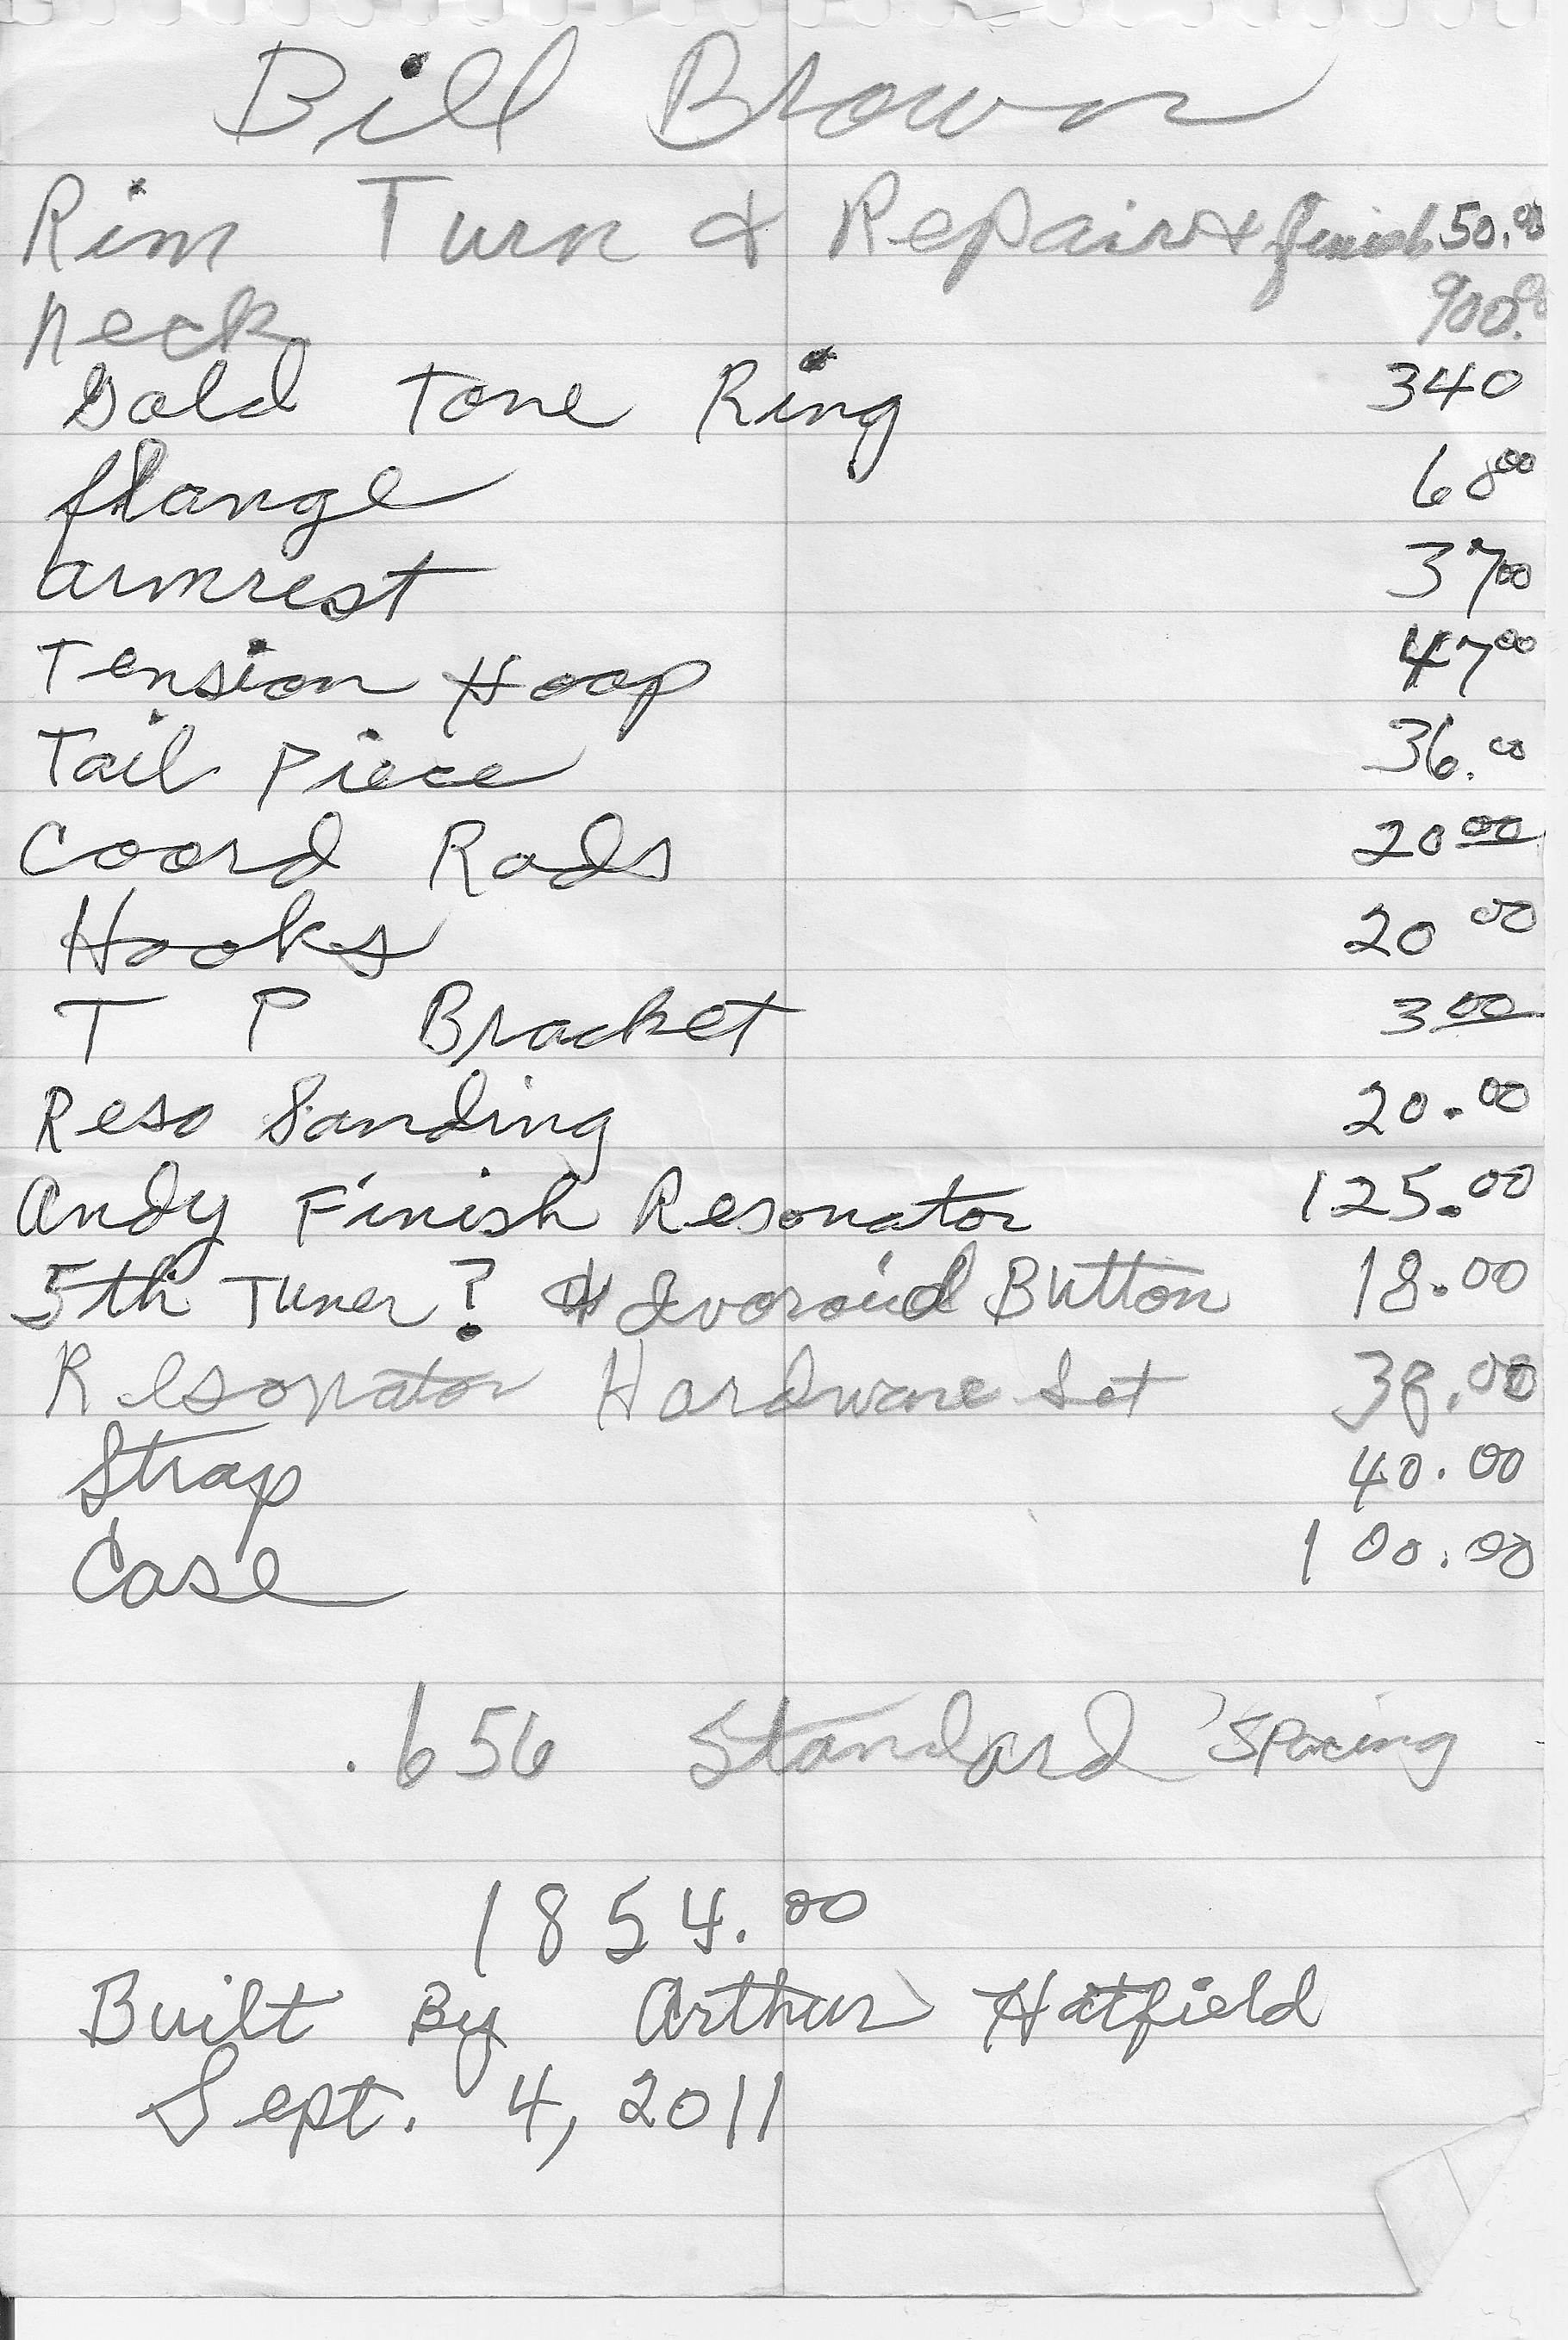 Bill Brown
Rim Turn & Repair & finish 50.00
neck 900.00
Gold Tone Ring 340
flange 68 00
armrest 37 00
Tension Hoop 47 00
Tail Piece 36.00
Coord Rods 20 00
Hooks 20 00
T P Bracket 3 00
Reso Sanding 20.00
Andy Finish Resonator 125.00
5th Tuner? & Ivoroid Button 18.00
Resonator Hardware Set 38.00
Strap 40.00
Case 100.00
.656 Standard Spacing
1854.00
Built By Arthur Hatfield
Sept. 4, 2011